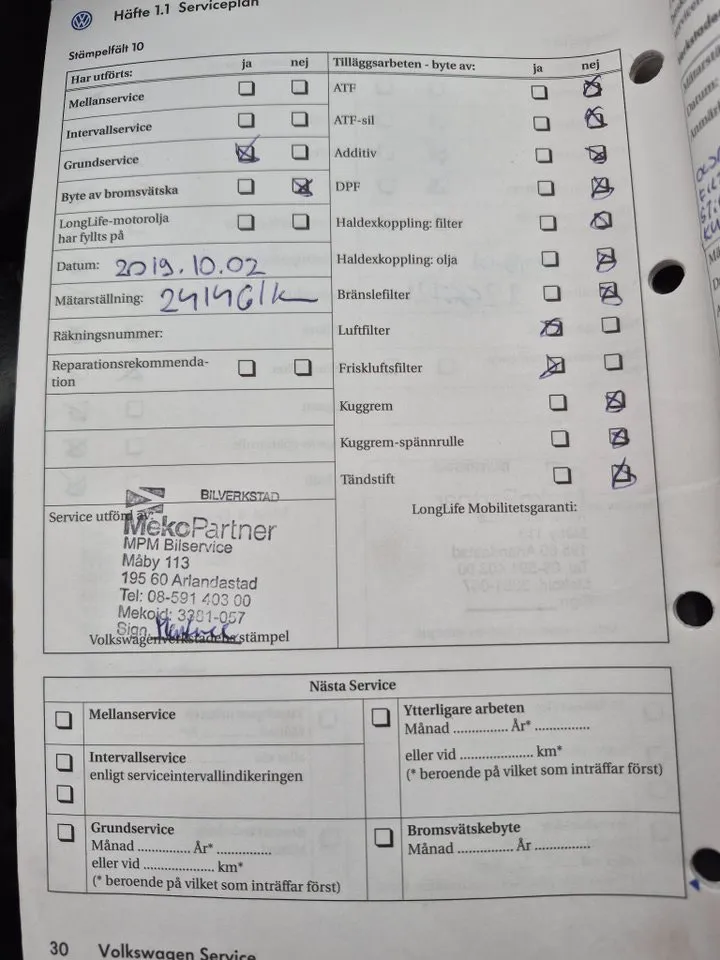 Häfte 1.1 Serviceplan
Stämpelfält 10
Har utförts: ja nej
Mellanservice
Intervallservice
Grundservice
Byte av bromsvätska
LongLife-motorolja
har fyllts på
Datum: 2019.10.02
Mätarställning:
Räkningsnummer:
Reparationsrekommenda-
tion
BILVERKSTAD
Service utförd av:
MekoPartner
MPM Bilservice
Måby 113
195 60 Arlandastad
Tel: 08-591 403 00
Mekoid: 3381-057
Sign.
Volkswagenverkstadens stämpel
Tilläggsarbeten - byte av: ja nej
ATF
ATF-sil
Additiv
DPF
Haldexkoppling: filter
Haldexkoppling: olja
Bränslefilter
Luftfilter
Friskluftsfilter
Kuggrem
Kuggrem-spännrulle
Tändstift
LongLife Mobilitetsgaranti:
Nästa Service
Mellanservice
Intervallservice
enligt serviceintervallindikeringen
Grundservice
Månad .............. År* ..............
eller vid .................... km*
(* beroende på vilket som inträffar först)
Ytterligare arbeten
Månad .............. År* ..............
eller vid .................... km*
(* beroende på vilket som inträffar först)
Bromsvätskebyte
Månad .............. År ..............
30 Volkswagen Service